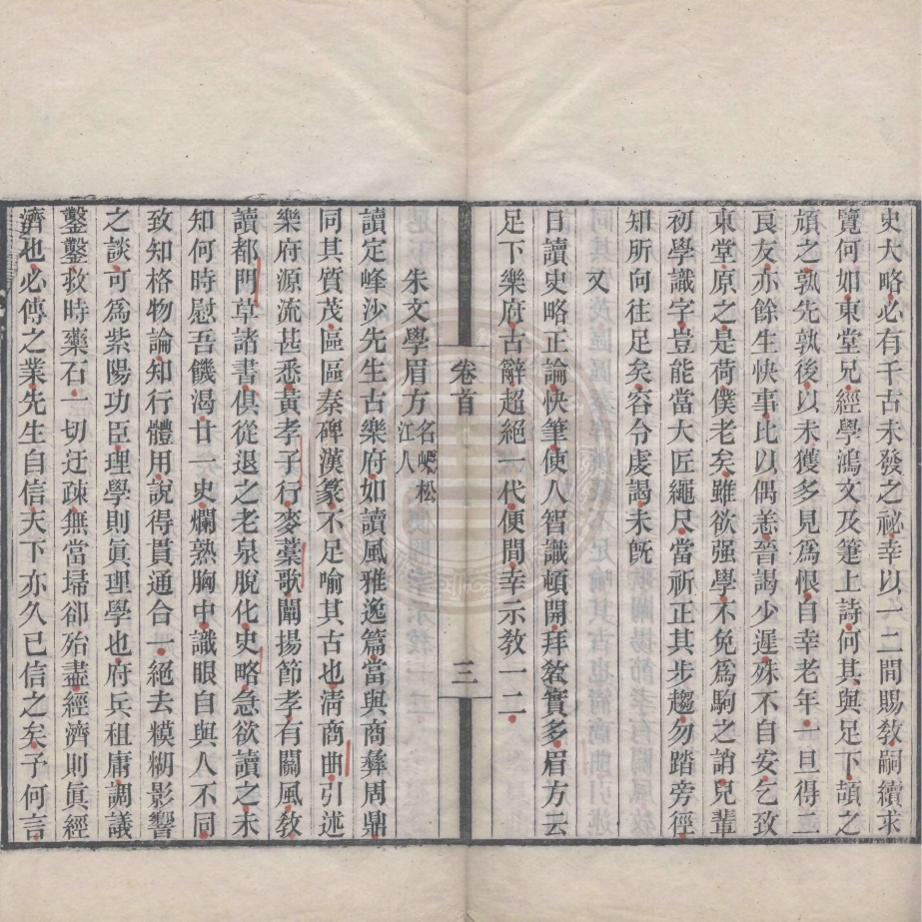 史大略必有千古未發之祕幸以一二間賜教嗣續求
覽何如東堂兄經學鴻文及筆上詩何其與足下頡之
頏之孰先孰後以未獲多見爲恨自幸老年一旦得二
良友亦餘生快事比以偶恙晉謁少遲殊不自安乞致
東堂原之是荷僕老矣雖欲强學不免爲駒之誚兒輩
初學識字豈能當大匠繩尺當祈正其步趨勿踏旁徑
知所向往足矣容令虔謁未旣
又
日讀史略正論快筆使人智識頓開拜教實多眉方云
足下樂府古辭超絕一代便間幸示教一二
卷首
三
朱文學眉方名㠓松江人
讀定峰沙先生古樂府如讀風雅逸篇當與商彝周鼎
同其質茂區區秦碑漢篆不足喻其古也淸商曲引述
樂府源流甚悉黃孝子行麥薹歌闡揚節孝有關風敎
讀都門草諸書俱從退之老泉脫化史略急欲讀之未
知何時慰吾饑渴廿一史爛熟胸中識眼自與人不同
致知格物論知行體用說得貫通合一絕去糢糊影響
之談可爲紫陽功臣理學則眞理學也府兵租庸調議
鑿鑿救時藥石一切迂疎無當埽卻殆盡經濟則眞經
濟也必傳之業先生自信天下亦久已信之矣予何言